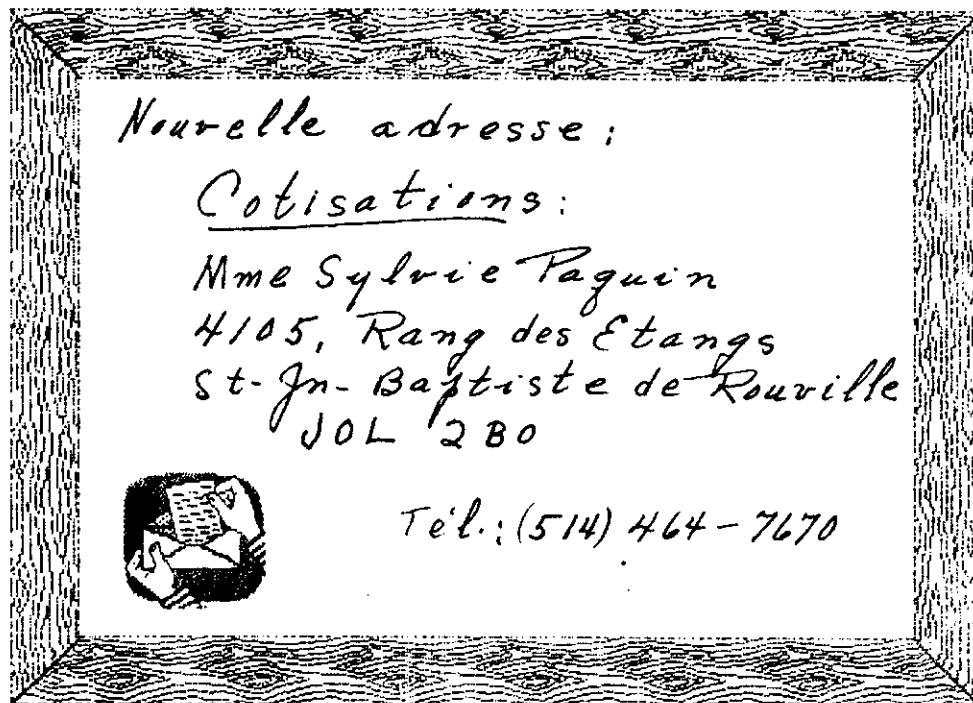 Nouvelle adresse :
Cotisations :
Mme Sylvie Paquin
4105, Rang des Etangs
St-Jn-Baptiste de Rouville
J0L 2B0
Tél.: (514) 464-7670